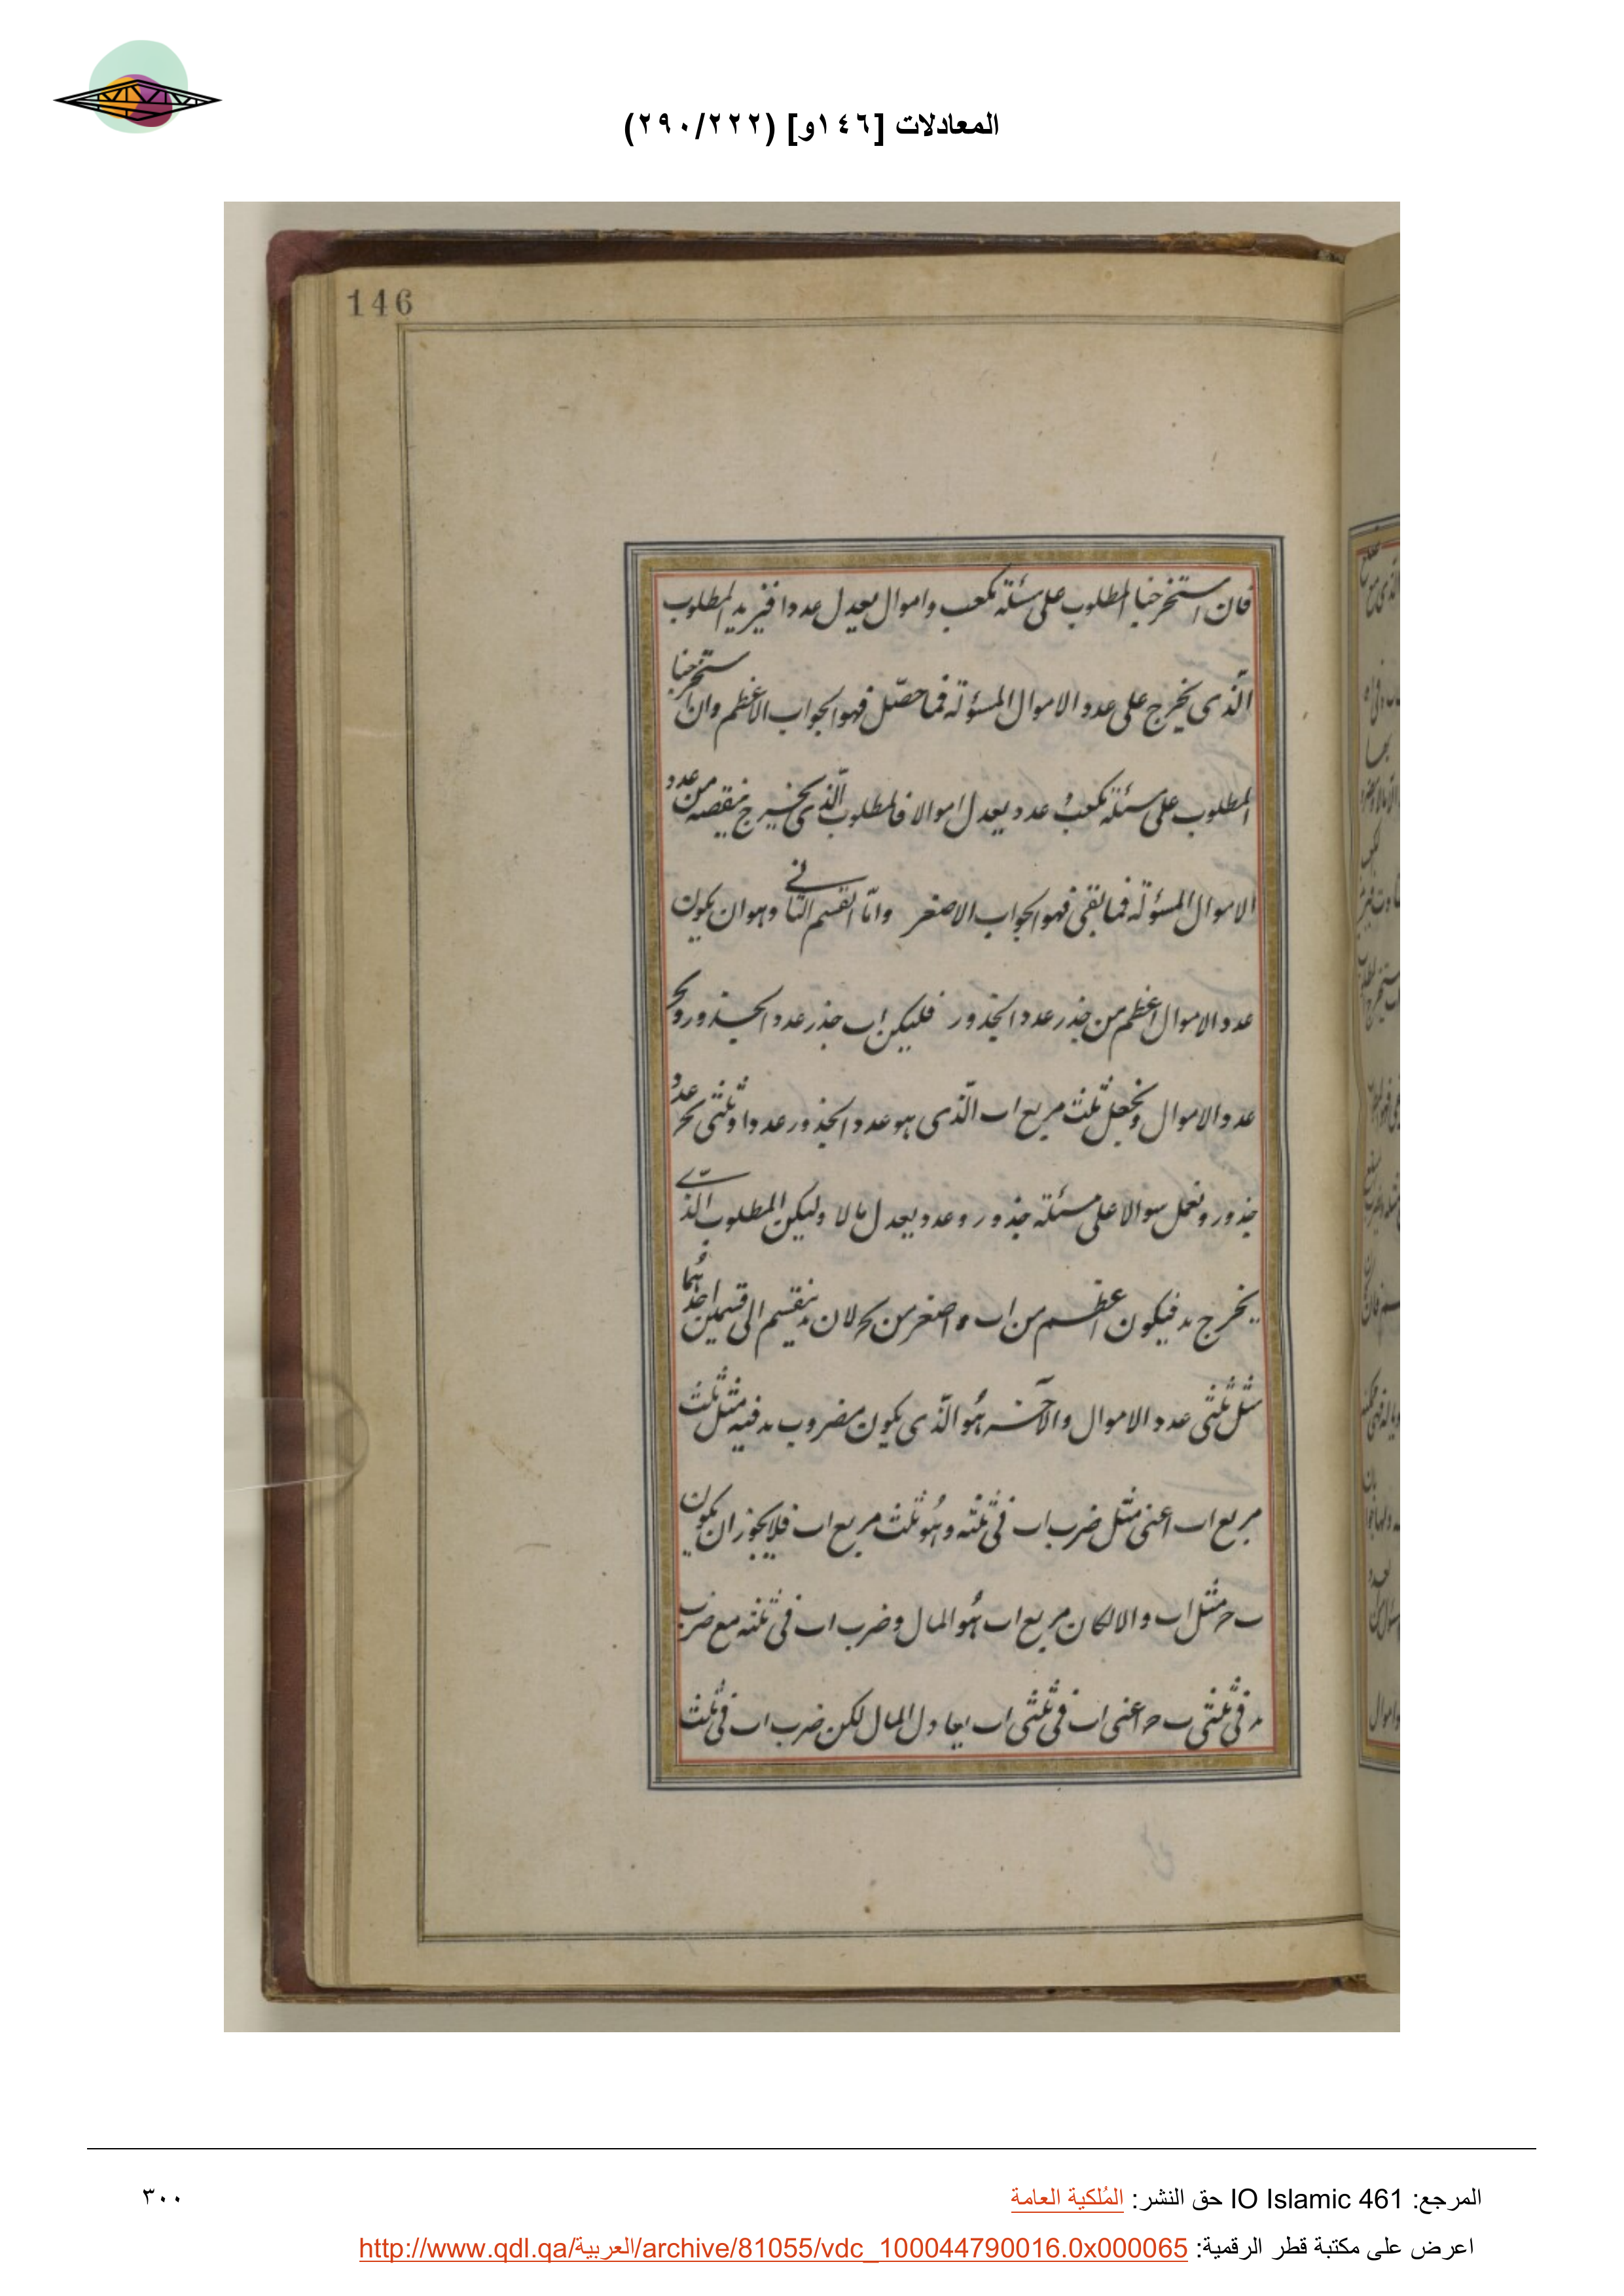 المعادلات [١٤٦و] (٢٩٠/٢٢٢)
146
فان استخرجنا المطلوب على مسئلة مكعب واموال يعدل عددا فنزيد المطلوب
الّذى يخرج على عدد الاموال المسؤلة فما حصّل فهو الجواب الاعظم وان استخرجنا
المطلوب على مسئلة مكعب وعدد يعدل اموالا فالمطلوب الّذى يخرج ننقصه من عدد
الاموال المسؤلة فما بقى فهو الجواب الاصغر وامّا القسم الثانى وهو ان يكون
عدد الاموال اعظم من جذر عدد الجذور فليكن اب جذر عدد الجذور و
عدد الاموال ونجعل ثلث مربع اب الّذى هو عدد الجذور عددا وثلثى عدد
جذور ونعمل سوالا على مسئلة جذور وعدد يعدل مالا وليكن المطلوب الّذى
يخرج فيكون اعظم من اب واصغر من لان ينقسم الى قسمين احدهما
مثل ثلثى عدد الاموال والآخر هو الّذى يكون مضروب فيه مثل ثلث
مربع اب اعنى مثل ضرب اب فى ثلثه وهو ثلث مربع اب فلا يجوز ان يكون
مثل اب والا لكان مربع اب هو المال وضرب اب فى ثلثه مع ضرب
فى ثلثى اعنى اب فى ثلثى اب يعادل المال لكن ضرب اب فى ثلث
المرجع: IO Islamic 461 حق النشر: المُلكية العامة
٣٠٠
اعرض على مكتبة قطر الرقمية: http://www.qdl.qa/العربية/archive/81055/vdc_100044790016.0x000065